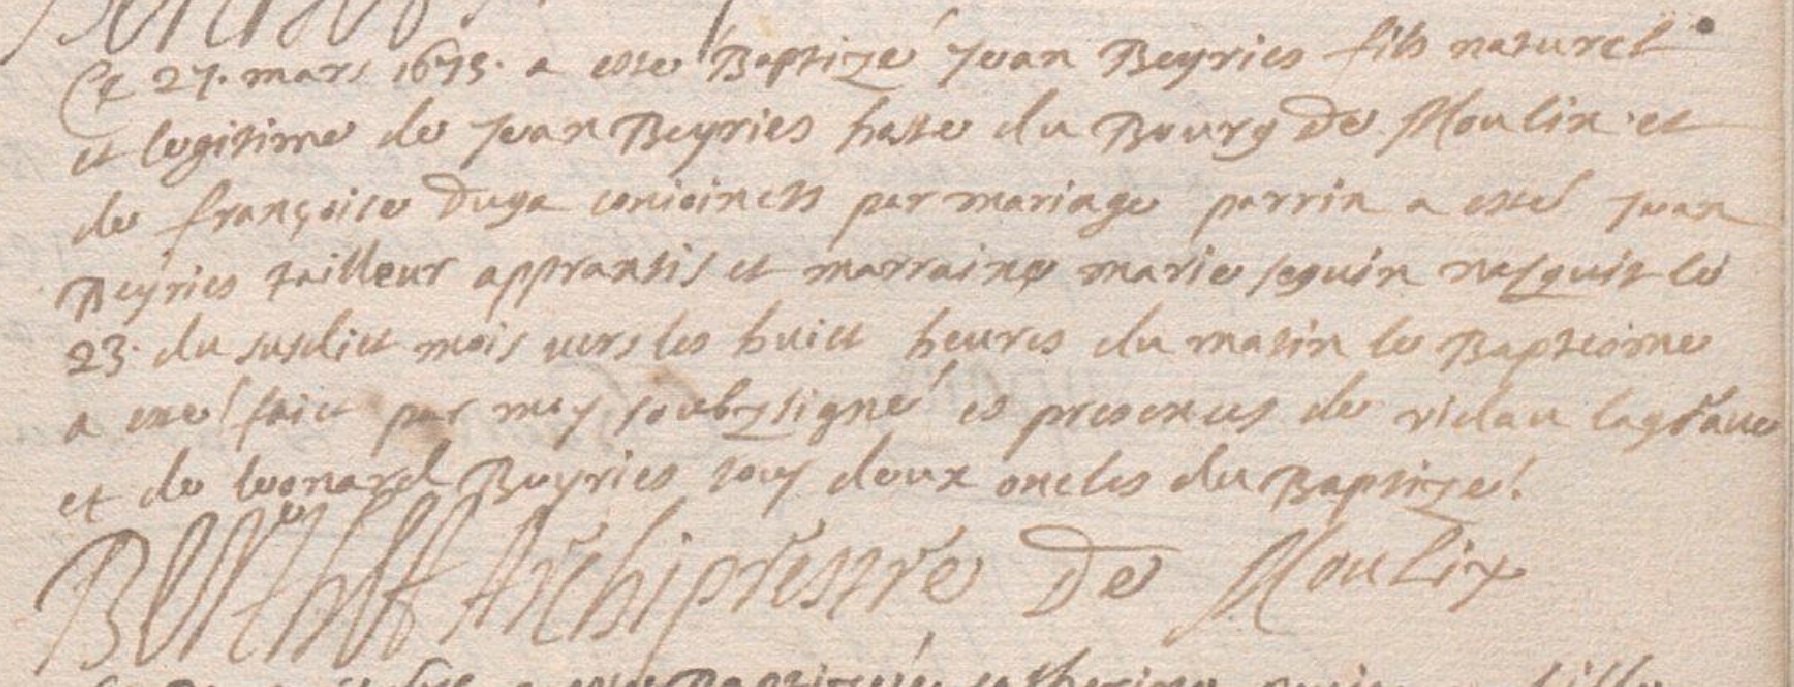 Ce 27. mars 1675. a esté Baptizé Jean Beyries fils naturel
et legitime de Jean Beyries haste du Bourg de Moulin et
de françoise Duga conioincts par mariage parrin a esté Jean
Beyries tailleur apprantis et marraine marie seguin nasquit le
23. du susdict mois vers les huict heures du matin le Baptesme
a esté faict par moy soubzsigné es presences de vidau lagraue
et de leonard Beyries tous deux oncles du Baptize!
Archiprestre De Moulix